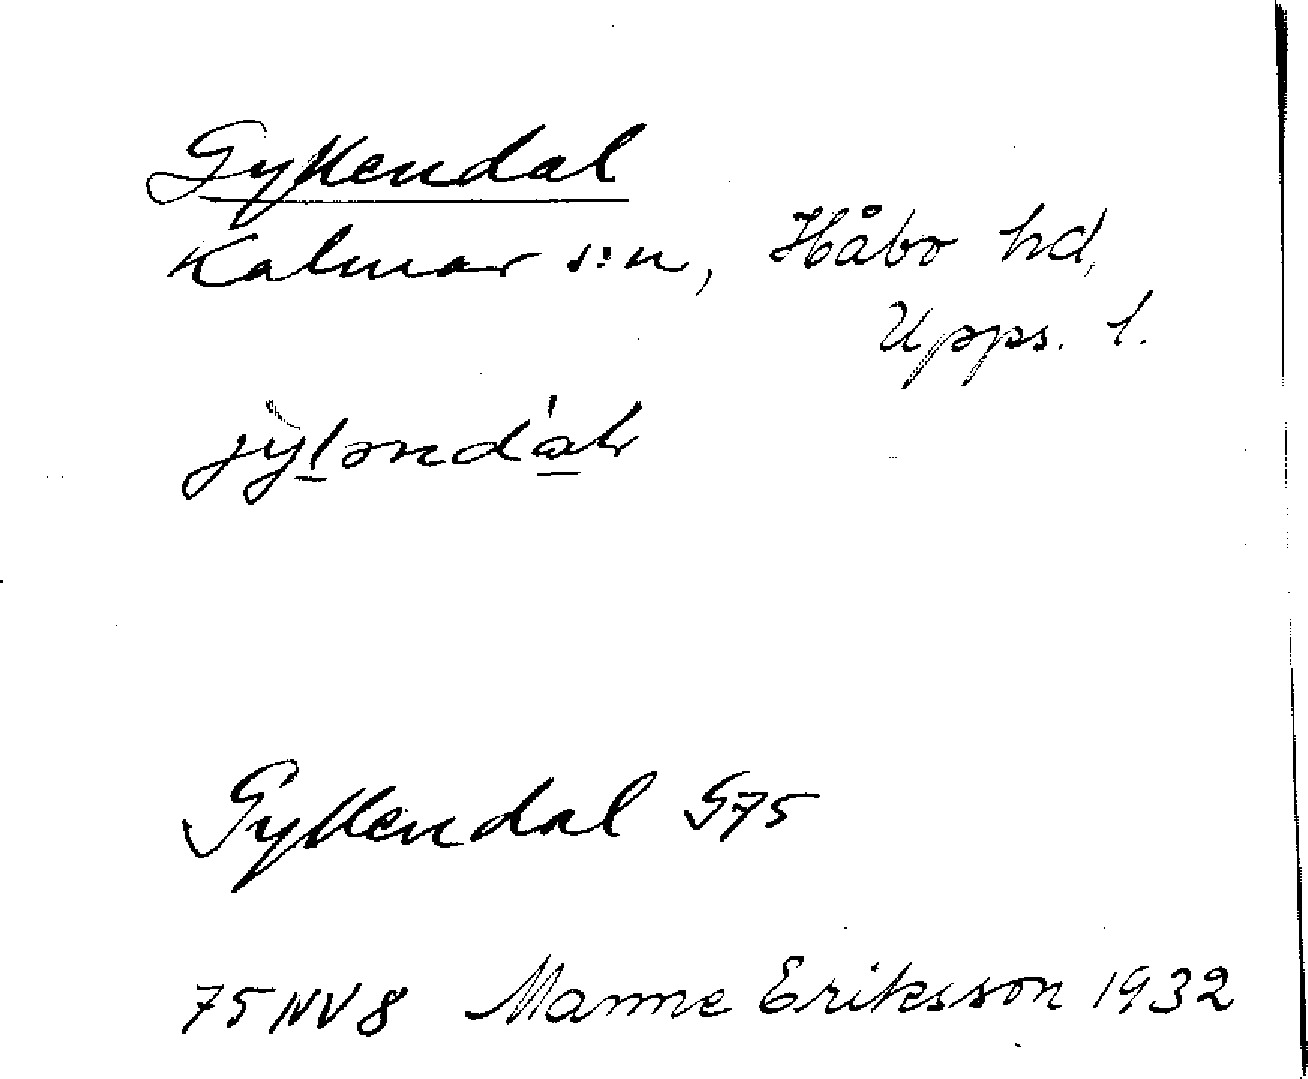 Gyllendal
Kalmar s:n, Håbo hd,
Upps. l.
Gyllendal G75
75 NV 8 Manne Eriksson 1932